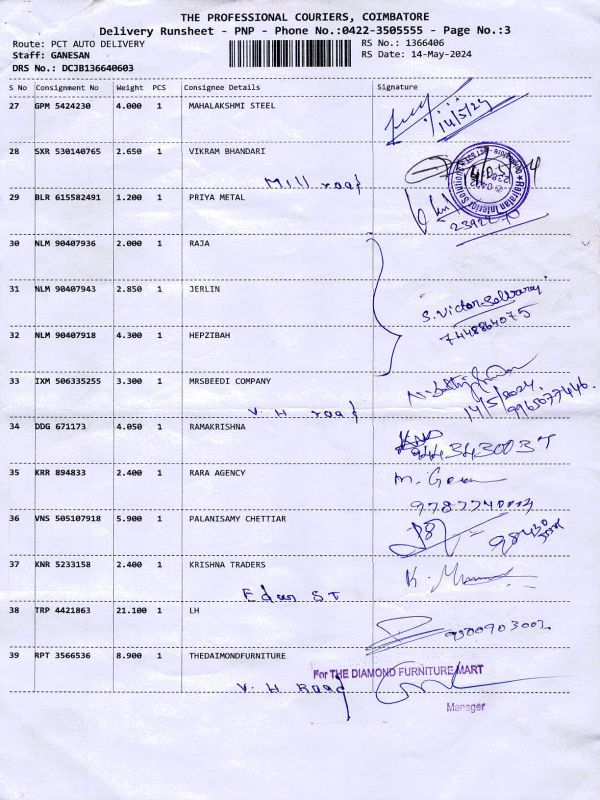 THE PROFESSIONAL COURIERS, COIMBATORE
Delivery Runsheet - PNP - Phone No.:0422-3505555 - Page No.:3
Route: PCT AUTO DELIVERY RS No.: 1366406
Staff: GANESAN RS Date: 14-May-2024
DRS No.: DCJB136640603
S No Consignment No Weight PCS Consignee Details Signature
27 GPM 5424230 4.000 1 MAHALAKSHMI STEEL
14/5/24
28 SXR 530140765 2.650 1 VIKRAM BHANDARI
Mill road
Rajratan Interior Solutions
29 BLR 615582491 1.200 1 PRIYA METAL
30 NLM 90407936 2.000 1 RAJA
31 NLM 90407943 2.850 1 JERLIN
S. Victor Selvaraj
7448864075
32 NLM 90407918 4.300 1 HEPZIBAH
33 IXM 506335255 3.300 1 MRSBEEDI COMPANY
14/5/2024.
9965077446.
V H road
34 DDG 671173 4.050 1 RAMAKRISHNA
35 KRR 894833 2.400 1 RARA AGENCY
36 VNS 505107918 5.900 1 PALANISAMY CHETTIAR
37 KNR 5233158 2.400 1 KRISHNA TRADERS
38 TRP 4421863 21.100 1 LH
39 RPT 3566536 8.900 1 THEDAIMONDFURNITURE
For THE DIAMOND FURNITURE MART
V. H Road
Manager